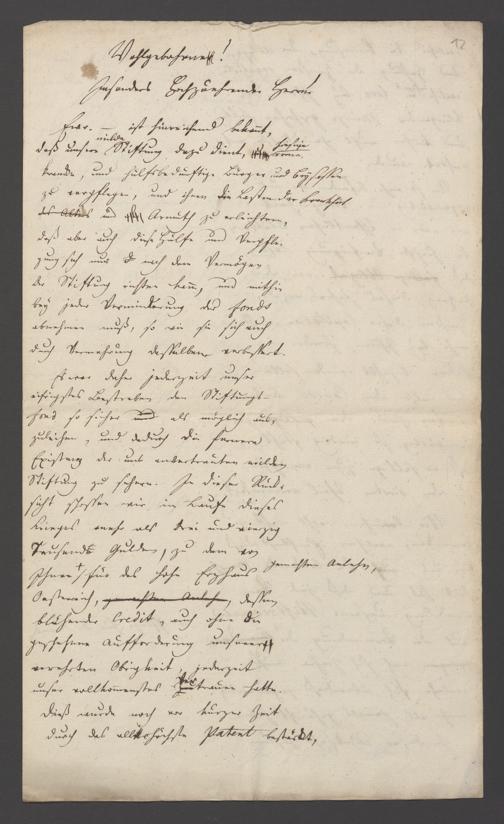 12
Wohlgebohrner!
Insonders Hochzuehrender Herr!
Euer. — ist hinreichend bekannt,
daß unsere milde Stiftung dazu dient, hiesige arme,
kranke, und hülfsbedürftige Bürger und Beysassen
zu verpflegen, und ihnen die Lasten der Krankheit
des Alters und Armuth zu erleichtern,
daß aber auch diese Hülfe und Verpfle-
gung sich nur nach dem Vermögen
der Stiftung richten kann, und mithin
bey jeder Verminderung des Fonds
abnehmen muß, so wie sie sich auch
durch Vermehrung desselben verbessert.
Es war daher jederzeit unser
eifrigstes Bestreben den Stiftungs-
Fond so sicher als möglich aus-
zuleihen, und dadurch die fernere
Existenz der uns anvertrauten milden
Stiftung zu sichern. In dieser Rück-
sicht schossen wir im Laufe dieses
Krieges mehr als drei und vierzig
Tausend Gulden, zu dem von
für das hohe Erzhaus gemachten Anlehn,
Oesterreich, gemachten Anlehn, dessen
blühender Credit, auch ohne die
geschehene Aufforderung unserer
verehrten Obrigkeit, jederzeit
unser vollkommenstes Zutrauen hatte.
Dieß wurde noch vor kurzer Zeit
durch das allerhöchste Patent bestärkt,